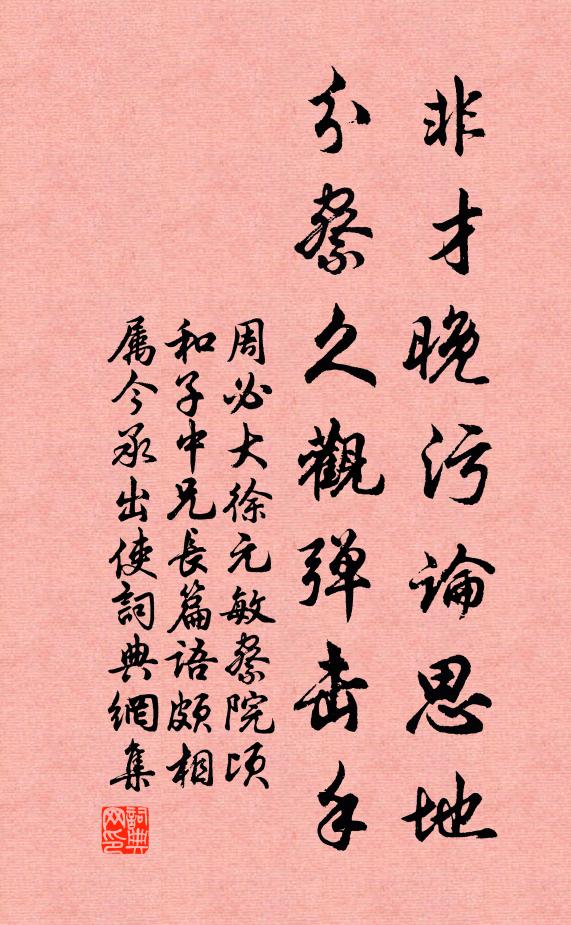 非才晚污論思地
分察久觀弹击手
周必大徐元敏察院顷
和子中兄長篇語頗相
属今承出使詞典網集
詞典网印